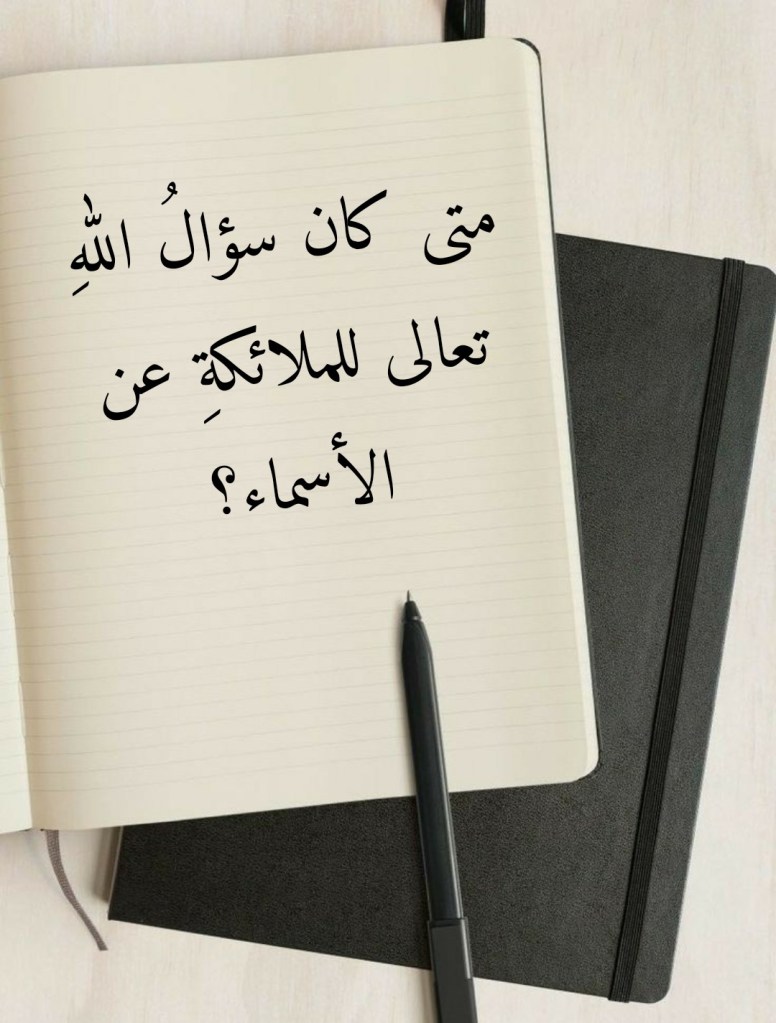 متى كان سؤالُ اللهِ
تعالى للملائكةِ عن
الأسماء؟